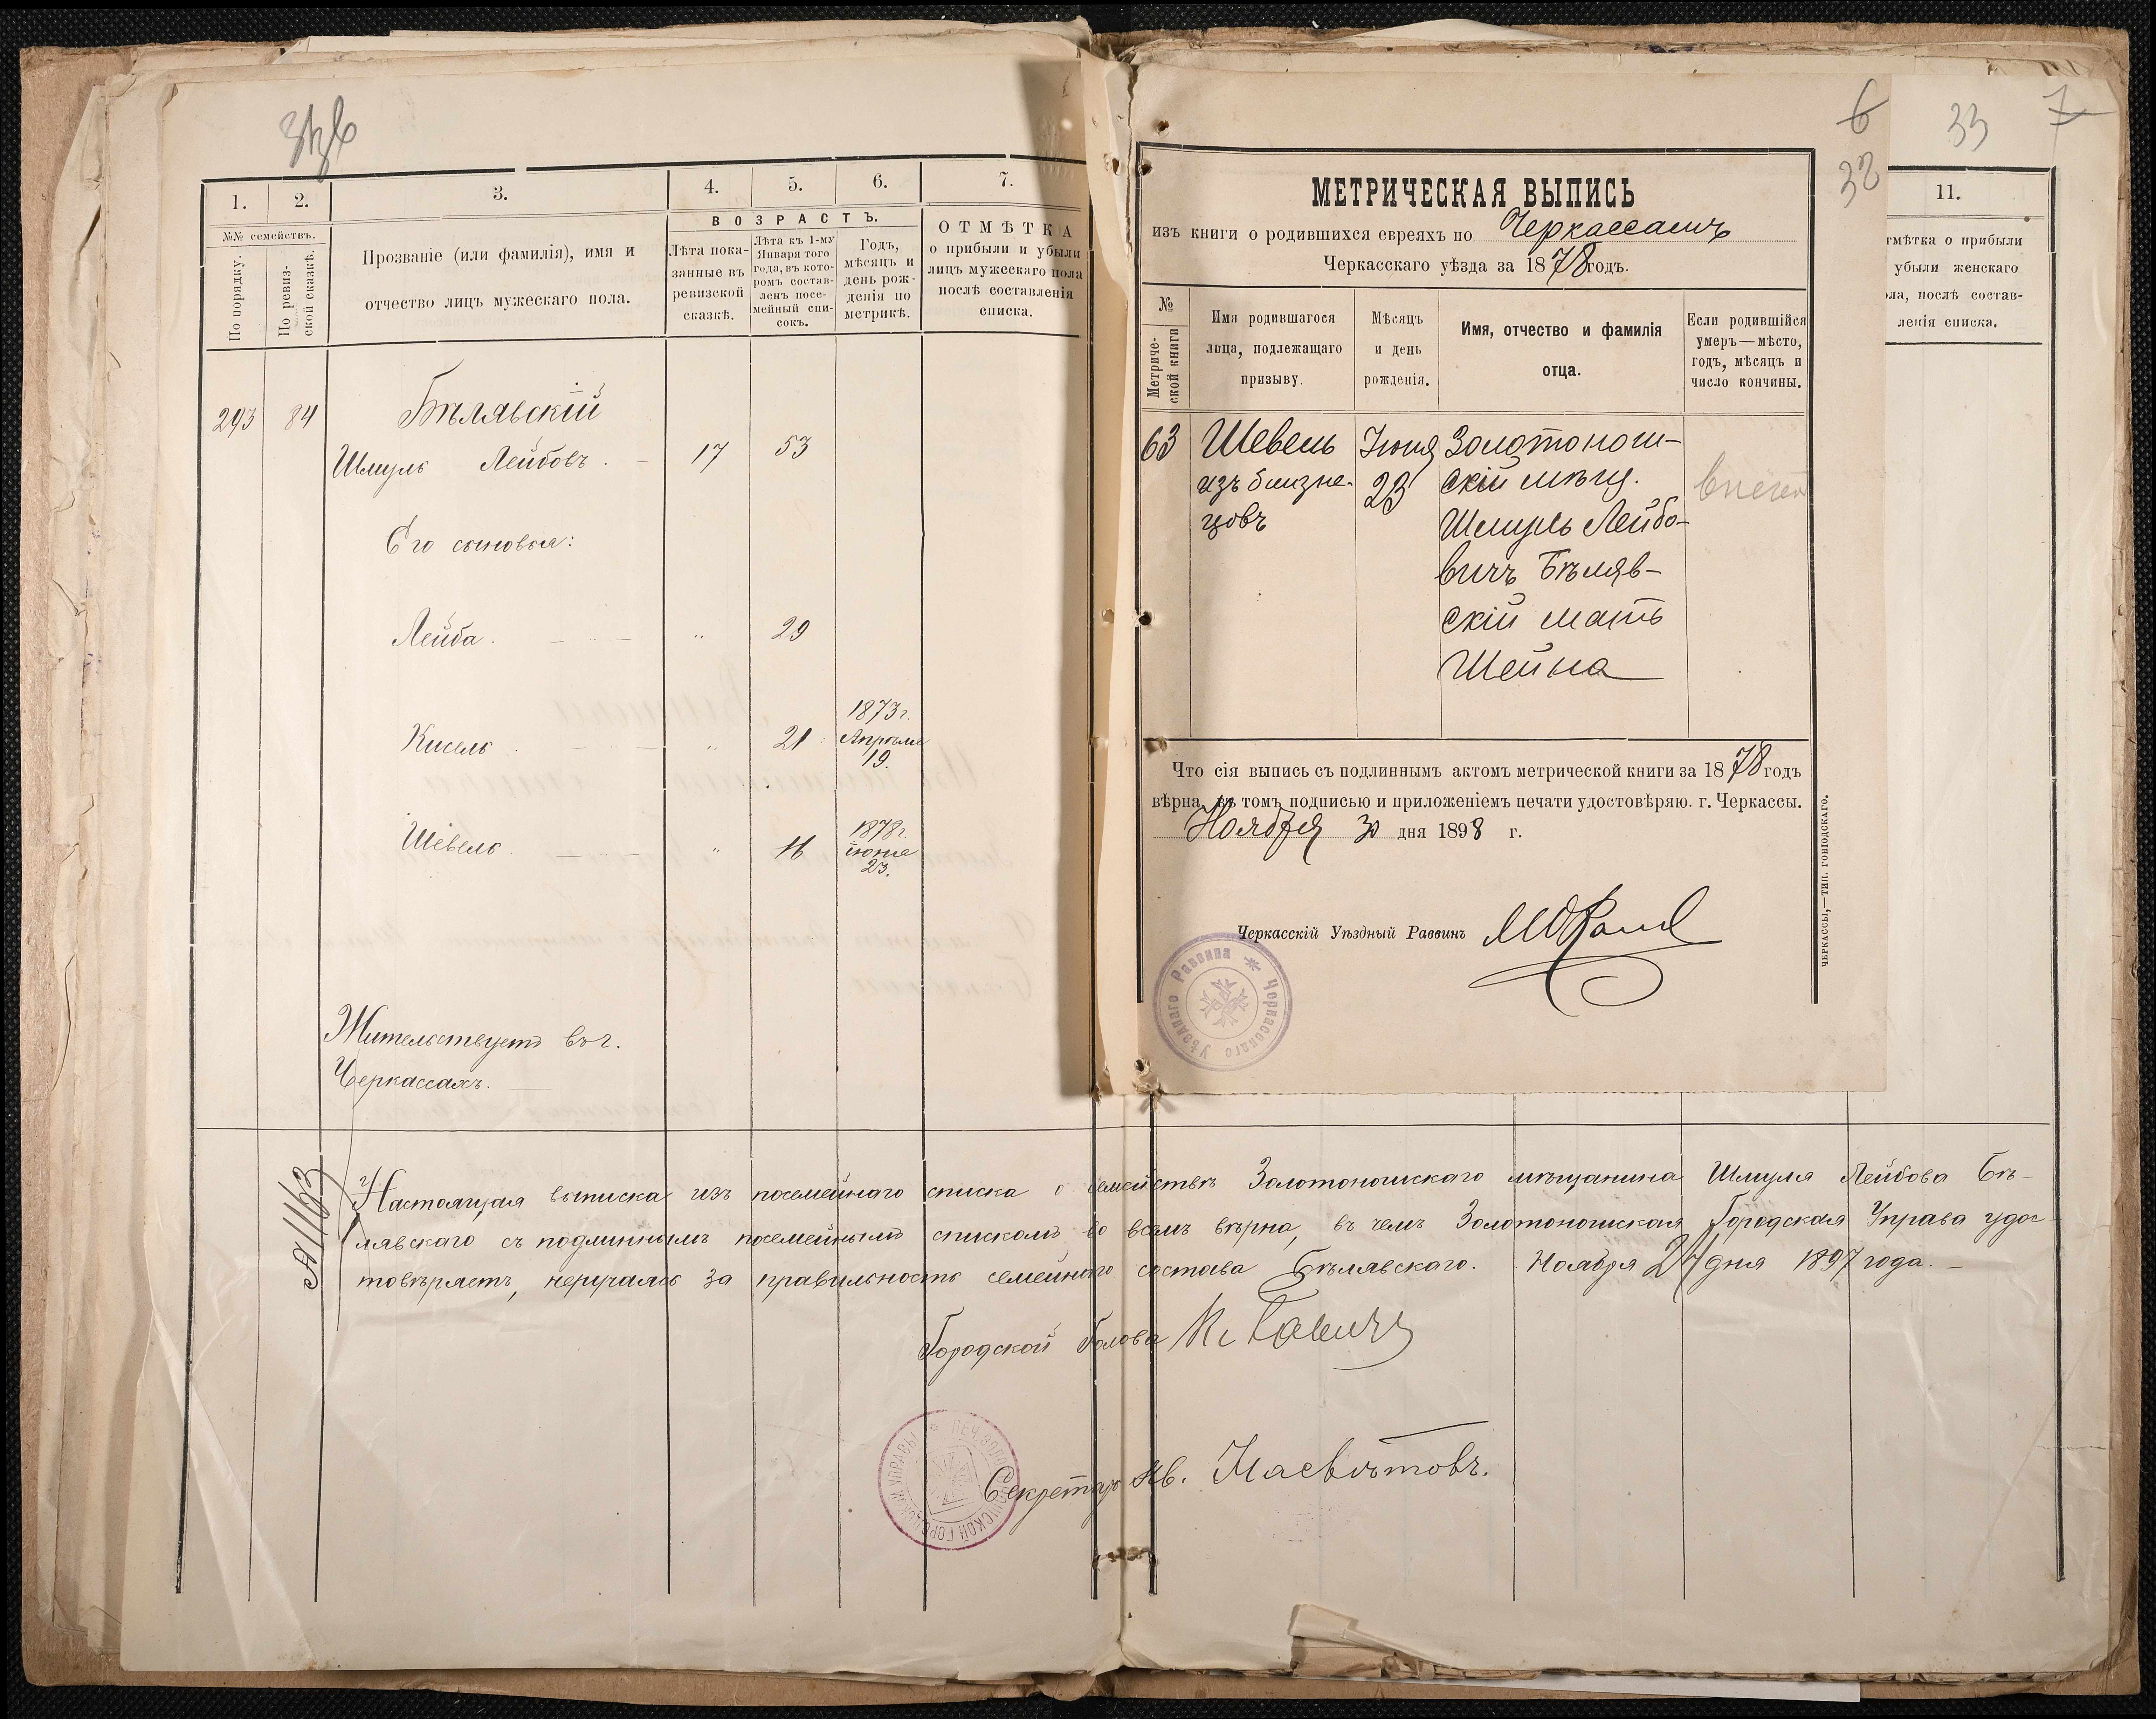 1.
2.
3.
4.
5.
6.
7.
№№ семействъ.
По порядку.
По ревиз-
ской сказкѣ.
Прозваніе (или фамилія), имя и
отчество лицъ мужескаго пола.
ВОЗРАСТЪ.
Лѣта пока-
занные въ
ревизской
сказкѣ.
Лѣта къ 1-му
Января того
года, въ кото-
ромъ состав-
ленъ посе-
мейный спи-
сокъ.
Годъ,
мѣсяцъ и
день рож-
денія по
метрикѣ.
ОТМѢТКА
о прибыли и убыли
лицъ мужескаго пола
послѣ составленія
списка.
293 84 Бѣлявскій
Шмуль Лейбовъ. 17 53
Его сыновья:
Лейба. „ 29
Кисель „ 21 1873 г.
Апрѣля
19.
Шевель „ 16 1878 г.
іюня
23.
Жительствуетъ въ г.
Черкассахъ.
6
32
33
7
МЕТРИЧЕСКАЯ ВЫПИСЬ
изъ книги о родившихся евреяхъ по Черкассамъ
Черкасскаго уѣзда за 1878 годъ.
№
Метриче-
ской книги
Имя родившагося
лица, подлежащаго
призыву.
Мѣсяцъ
и день
рожденія.
Имя, отчество и фамилія
отца.
Если родившійся
умеръ—мѣсто,
годъ, мѣсяцъ и
число кончины.
63 Шевель Іюня Золотонош-
изъ близне- 23 скій мѣщ.
цовъ Шмуль Лейбо-
вичъ Бѣляв-
скій мать
Шейна
Что сія выпись съ подлиннымъ актомъ метрической книги за 1878 годъ
вѣрна, въ томъ подписью и приложеніемъ печати удостовѣряю. г. Черкассы.
Ноября 30 дня 1898 г.
Черкасскій Уѣздный Раввинъ
Черкасскаго Уѣзднаго Раввина
ЧЕРКАССЫ,—ТИП. ГОНІОДСКАГО.
11.
тмѣтка о прибыли
убыли женскаго
ла, послѣ состав-
ленія списка.
Настоящая выписка изъ посемейнаго списка о семействѣ Золотоношскаго мѣщанина Шмуля Лейбова Бѣ-
лявскаго съ подлиннымъ посемейнымъ спискомъ во всемъ вѣрна, въ чемъ Золотоношская Городская Управа удос
товѣряетъ, неручаясь за правильность семейнаго состава Бѣлявскаго. Ноября 24 дня 1897 года.
№ 1163
Городской Голова
Секретарь